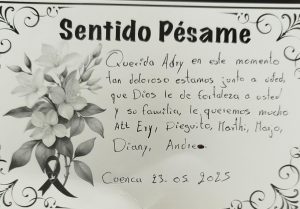 Sentido Pésame
Querida Adry en este momento
tan doloroso estamos junto a usted,
que Dios le de fortaleza a usted
y su familia, le queremos mucho
Att Ery, Dieguito, Marthi, Majo,
Diany, Andre
Cuenca 23.05.2025